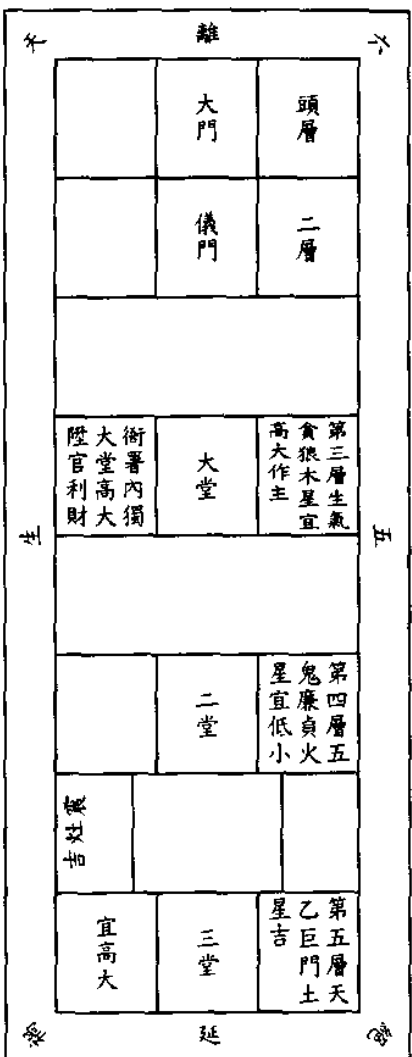 六
離
天
頭層
大門
二層
儀門
第三層生氣
貪狼木星宜
高大作主
大堂
衙署內獨
大堂高大
陞官利財
五
生
第四層五
鬼廉貞火
星宜低小
二堂
震灶吉
第五層天
乙巨門土
星吉
三堂
宜高大
絕
延
禍